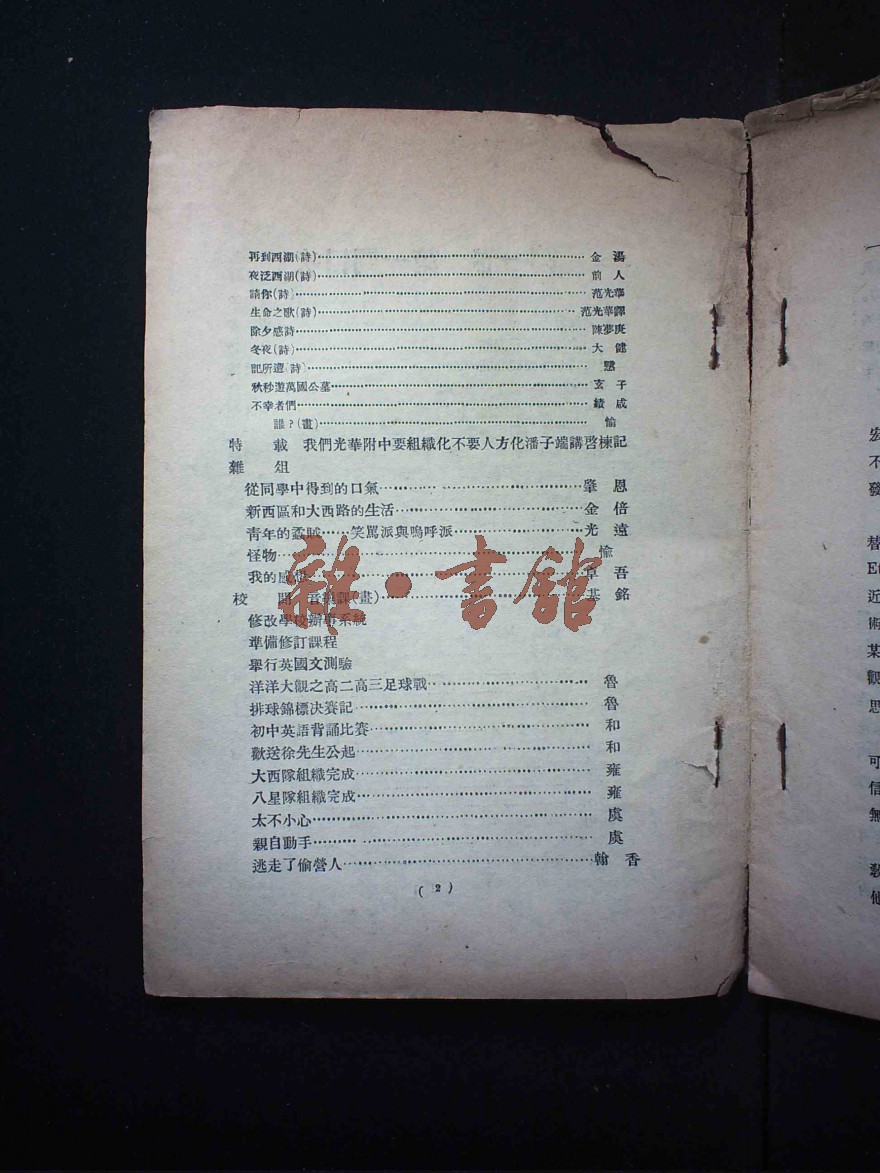 再到西湖(詩)……金湯
夜泛西湖(詩)……前人
請你(詩)……范光華
生命之歌(詩)……范光華譯
除夕感詩……陳夢庚
冬夜(詩)……大健
記所遭(詩)……
秋秒遊萬國公墓……玄子
不幸者們……績成
誰?(畫)……愉
特載 我們光華附中要組織化不要人方化潘子端講啓棟記
雜俎
從同學中得到的口氣……肇恩
新西區和大西路的生活……金倍
靑年的蟊賊……笑罵派與嗚呼派……光遠
怪物……愉
我的感想……卓吾
校聞 音樂課(畫)……基銘
修改學校辦事系統
準備修訂課程
舉行英國文測驗
洋洋大觀之高二高三足球戰……魯
排球錦標決賽記……魯
初中英語背誦比賽……和
歡送徐先生公起……和
大西隊組織完成……雍
八星隊組織完成……雍
太不小心……虞
親自動手……虞
逃走了偷營人……翰香
(2)
雜·書館
宏
不
發
替
近
術
某
觀
思
可
信
無
殺
他